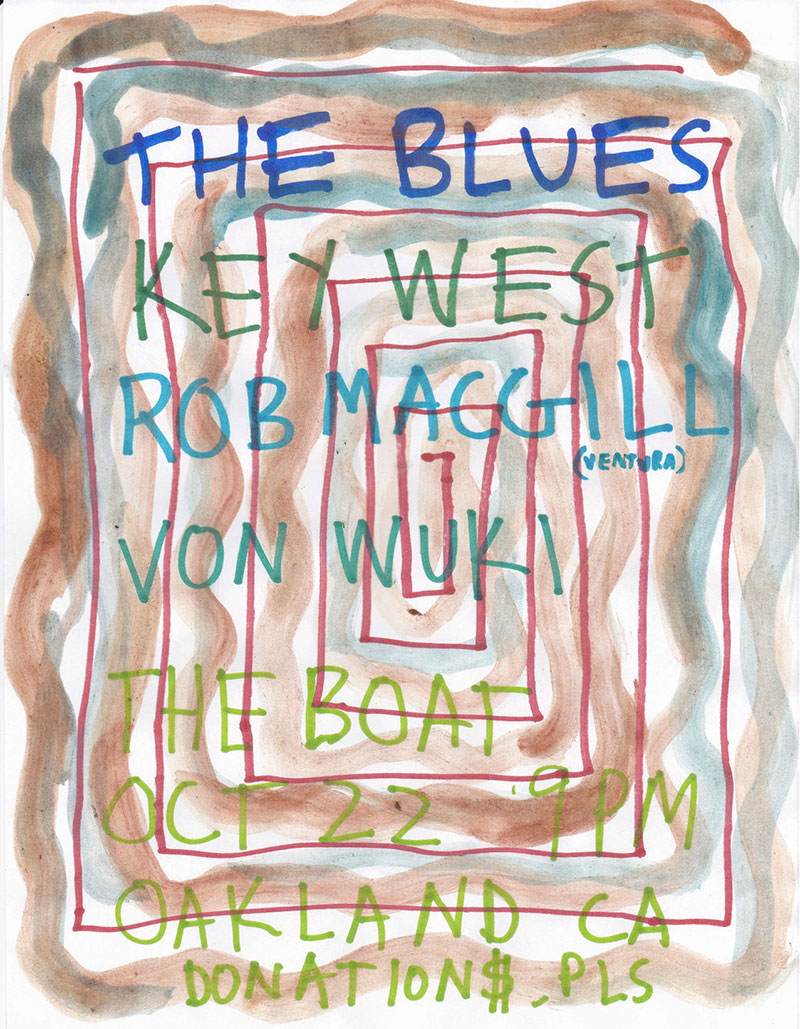 THE BLUES
KEY WEST
ROB MACGILL
(VENTURA)
VON WUKI
THE BOAT
OCT 22 9PM
OAKLAND CA
DONATION$, PLS